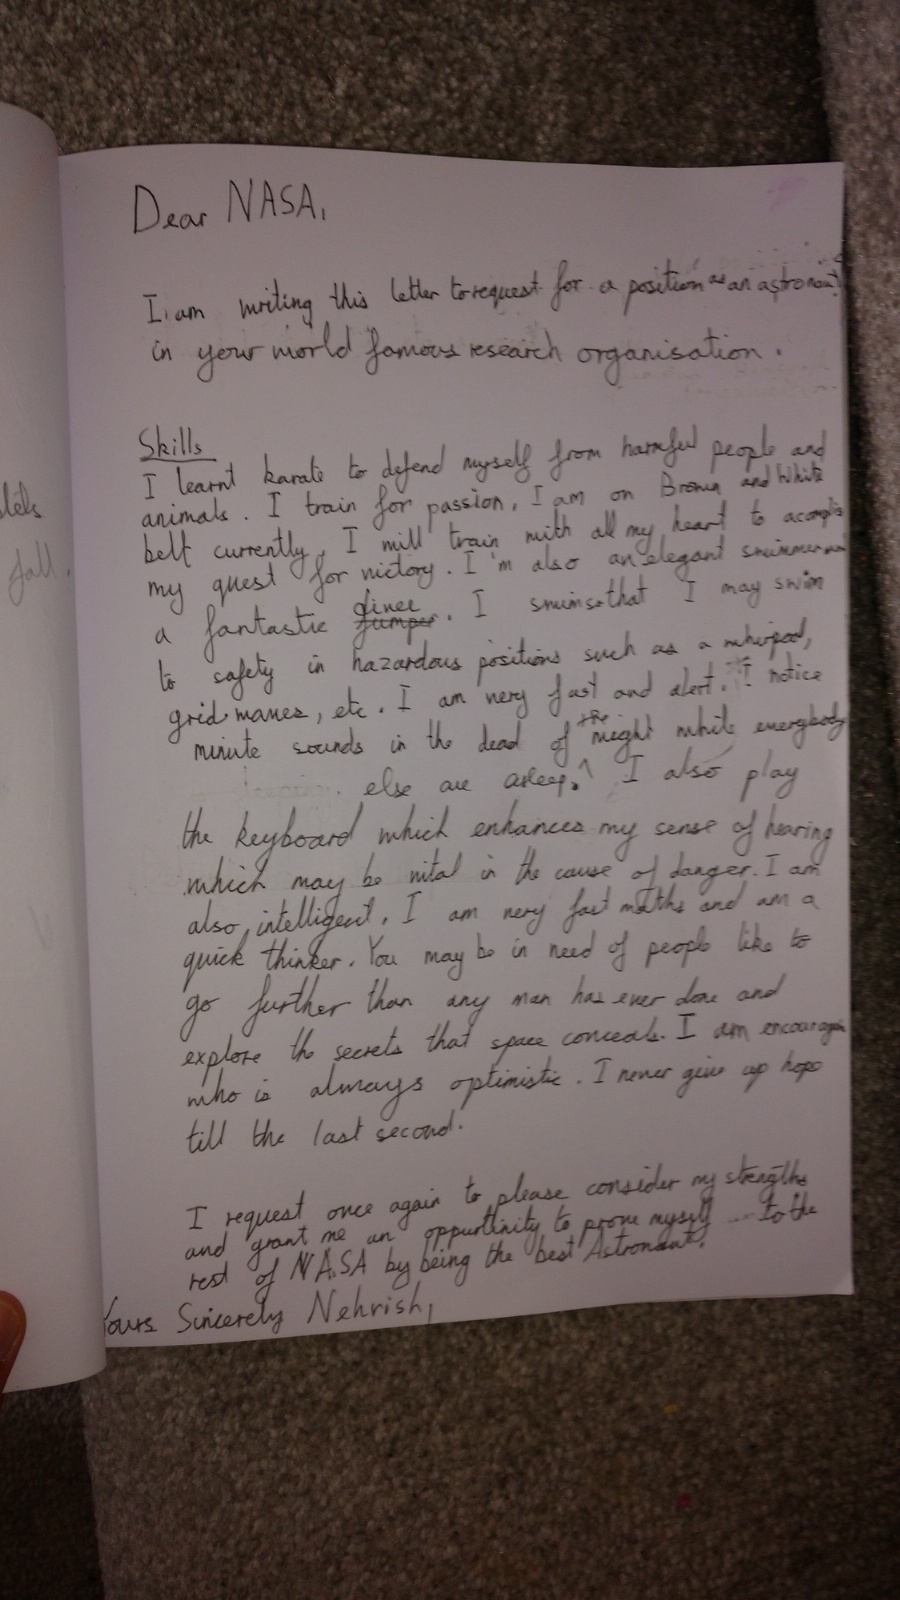 Dear NASA,
I am writing this letter to request for a position as an astronaut
in your world famous research organisation.
Skills
I learnt karate to defend myself from harmful people and
animals. I train for passion, I am on Brown and White
belt currently, I will train with all my heart to acomplis
my quest for victory. I'm also an elegant swimmer and
a fantastic diver jumper. I swim so that I may swim
to safety in hazardous positions such as a wherpool,
grid waves, etc. I am very fast and alert. I notice
minute sounds in the dead of the night while everybody
else are asleep. I also play
the keyboard which enhances my sense of hearing
which may be vital in the cause of danger. I am
also intelligent. I am very fast maths and am a
quick thinker. You may be in need of people like to
go further than any man has ever done and
explore the secrets that space conceals. I am
who is always optimistic. I never give up hope
till the last second.
I request once again to please consider my strengths
and grant me an oppurtinity to prove myself to the
rest of NASA by being the best Astronaut.
Yours Sincerely Nehrish,
slek
fall.